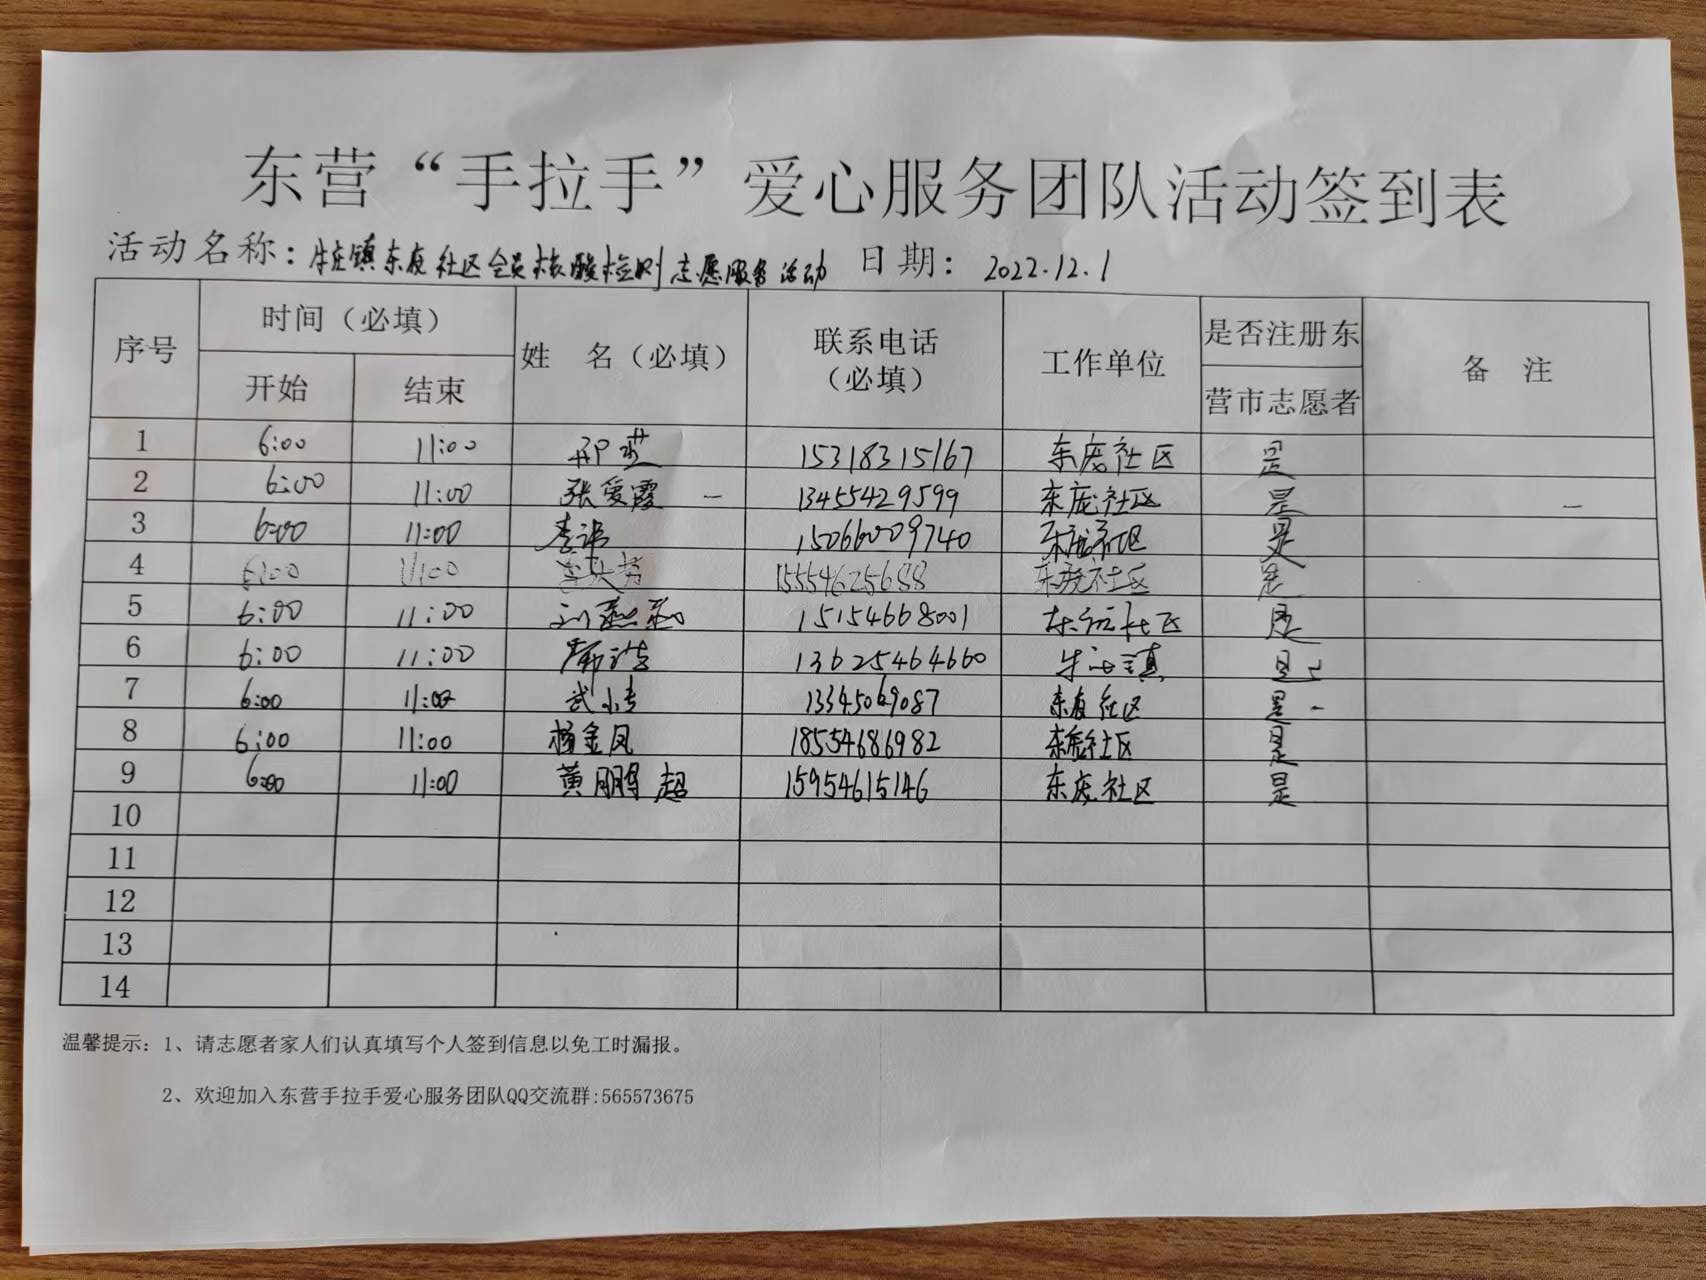 东营“手拉手”爱心服务团队活动签到表
活动名称：牛庄镇东庞社区全员核酸检测志愿服务活动 日期：2022.12.1
序号 时间（必填） 姓 名（必填） 联系电话（必填） 工作单位 是否注册东营市志愿者 备 注
开始 结束
1 6:00 11:00 邢燕 15318315167 东庞社区 是
2 6:00 11:00 张爱霞 13455429599 东庞社区 是
3 6:00 11:00 李 15066009740 东庞社区 是
4 6:00 11:00 李 15554625688 东庞社区 是
5 6:00 11:00 刘燕 15154668001 东庞社区 是
6 6:00 11:00 13625464660 牛庄镇 是
7 6:00 11:00 武 13345069087 东庞社区 是
8 6:00 11:00 杨金凤 18554686982 东庞社区 是
9 6:00 11:00 黄鹏超 15954615146 东庞社区 是
10
11
12
13
14
温馨提示：1、请志愿者家人们认真填写个人签到信息以免工时漏报。
2、欢迎加入东营手拉手爱心服务团队QQ交流群:565573675